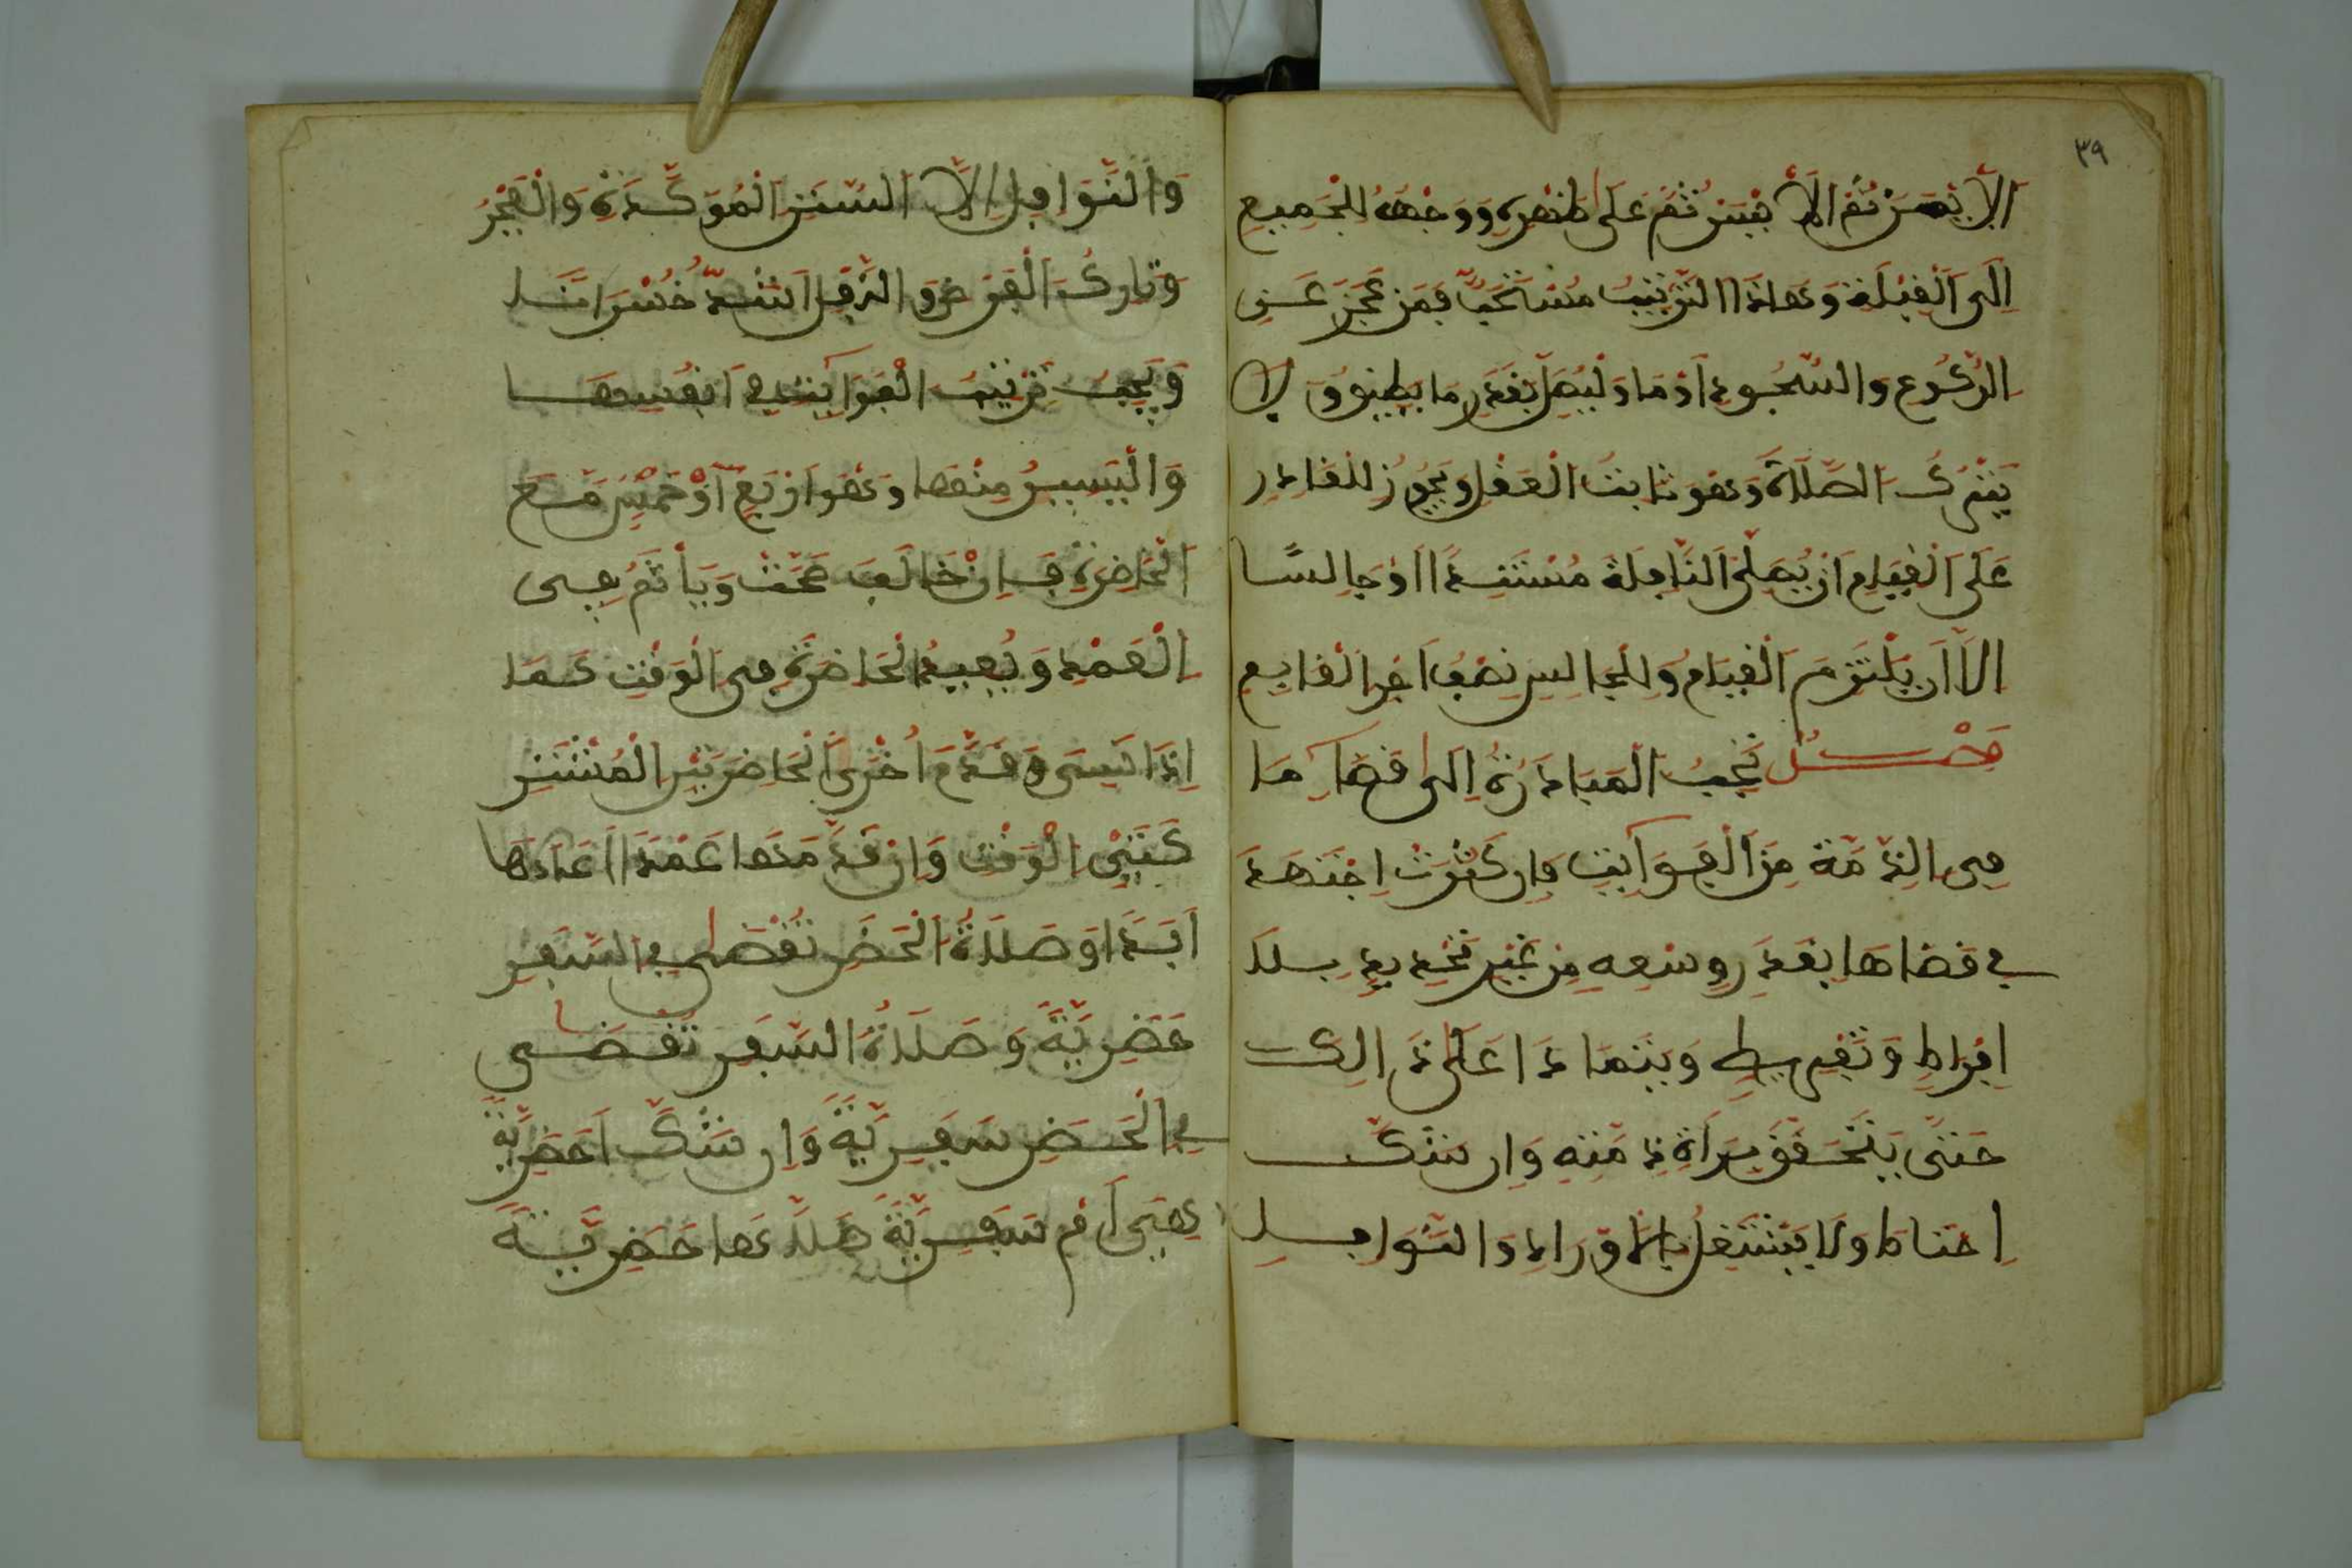 ٣٩
الأيمن ثم الأيسر ثم على ظهره ووجهه للجميع
إلى القبلة وهاذا الترتيب مستحب فمن عجز عن
الركوع والسجود أومأ وليصل بقدر ما يطيق ولا
يترك الصلاة وهو ثابت العقل ويجوز للقادر
على القيام أن يصلي النافلة مستندا أو جالسا
إلا أن يلتزم القيام وللجالس نصف أجر القايم
فصل تجب المبادرة إلى قضاء ما
في الذمة من الفوايت وإن كثرت اجتهد
في قضاها بقدر وسعه من غير تحديد بلا
إفراط وتفريط ويتمادا على ذالك
حتى يتحقق براة ذمته وإن شك
احتاط ولا يشتغل بالأوراد والنوافل
والنوافل إلا السنن المؤكدة والفجر
وتارك الفرض والنفل أشد خسرانا
ويجب ترتيب الفوايت في أنفسها
واليسير منها وهو أربع أو خمس مع
الحاضرة فإن خالف صحت ويأثم في
العمد ويعيد الحاضرة في الوقت كما
إذا نسي وقدم أخرى الحاضرتين المشتر
كتي الوقت وإن قدمها عمدا أعادها
أبدا وصلاة الحضر تقضى في السفر
حضرية وصلاة السفر تقضى
في الحضر سفرية وإن شك أحضرية
هي أم سفرية صلاها حضرية